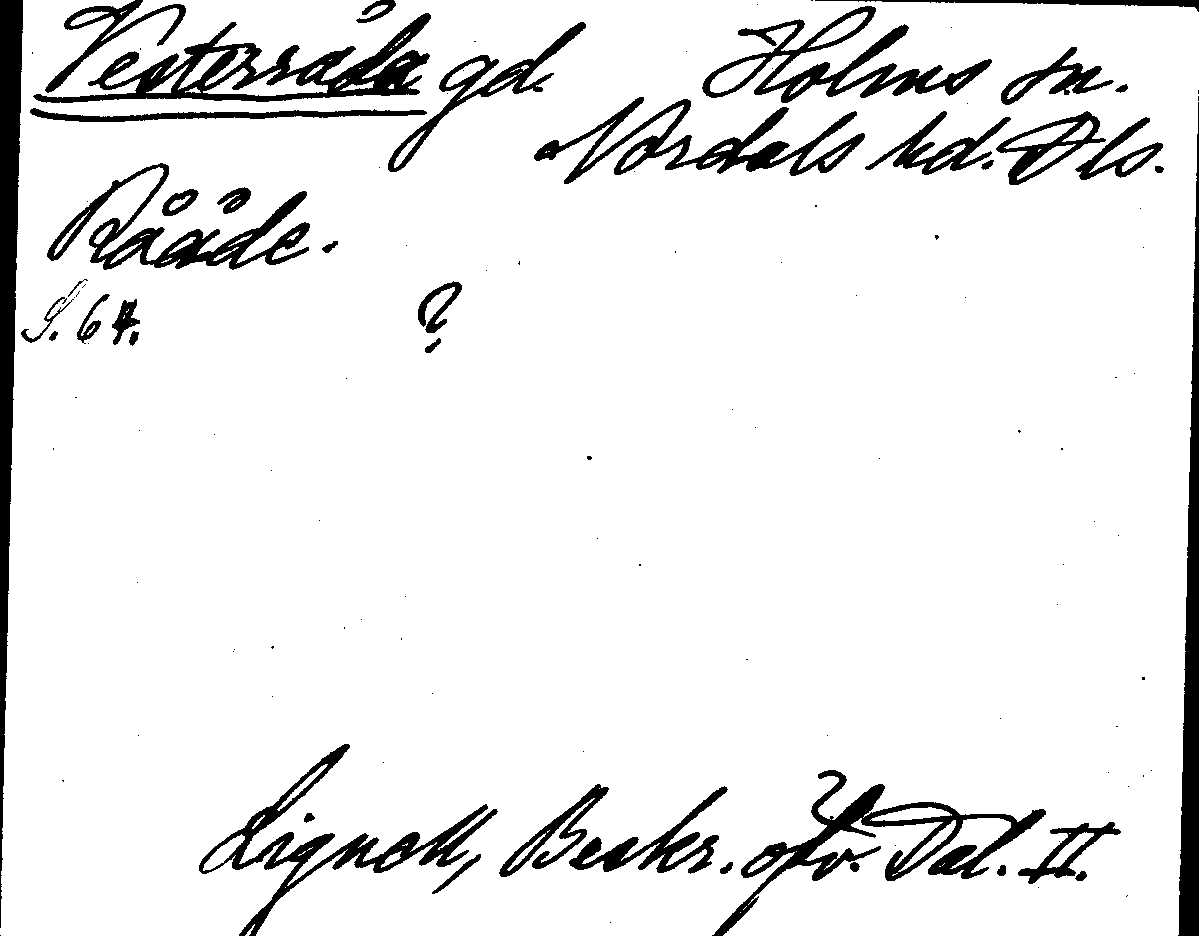 Vesterråda gd. Holms sn.
Nordals hd. Dls.
Rååde.
S. 64. ?
Lignell, Beskr. öfv. Dal. II.